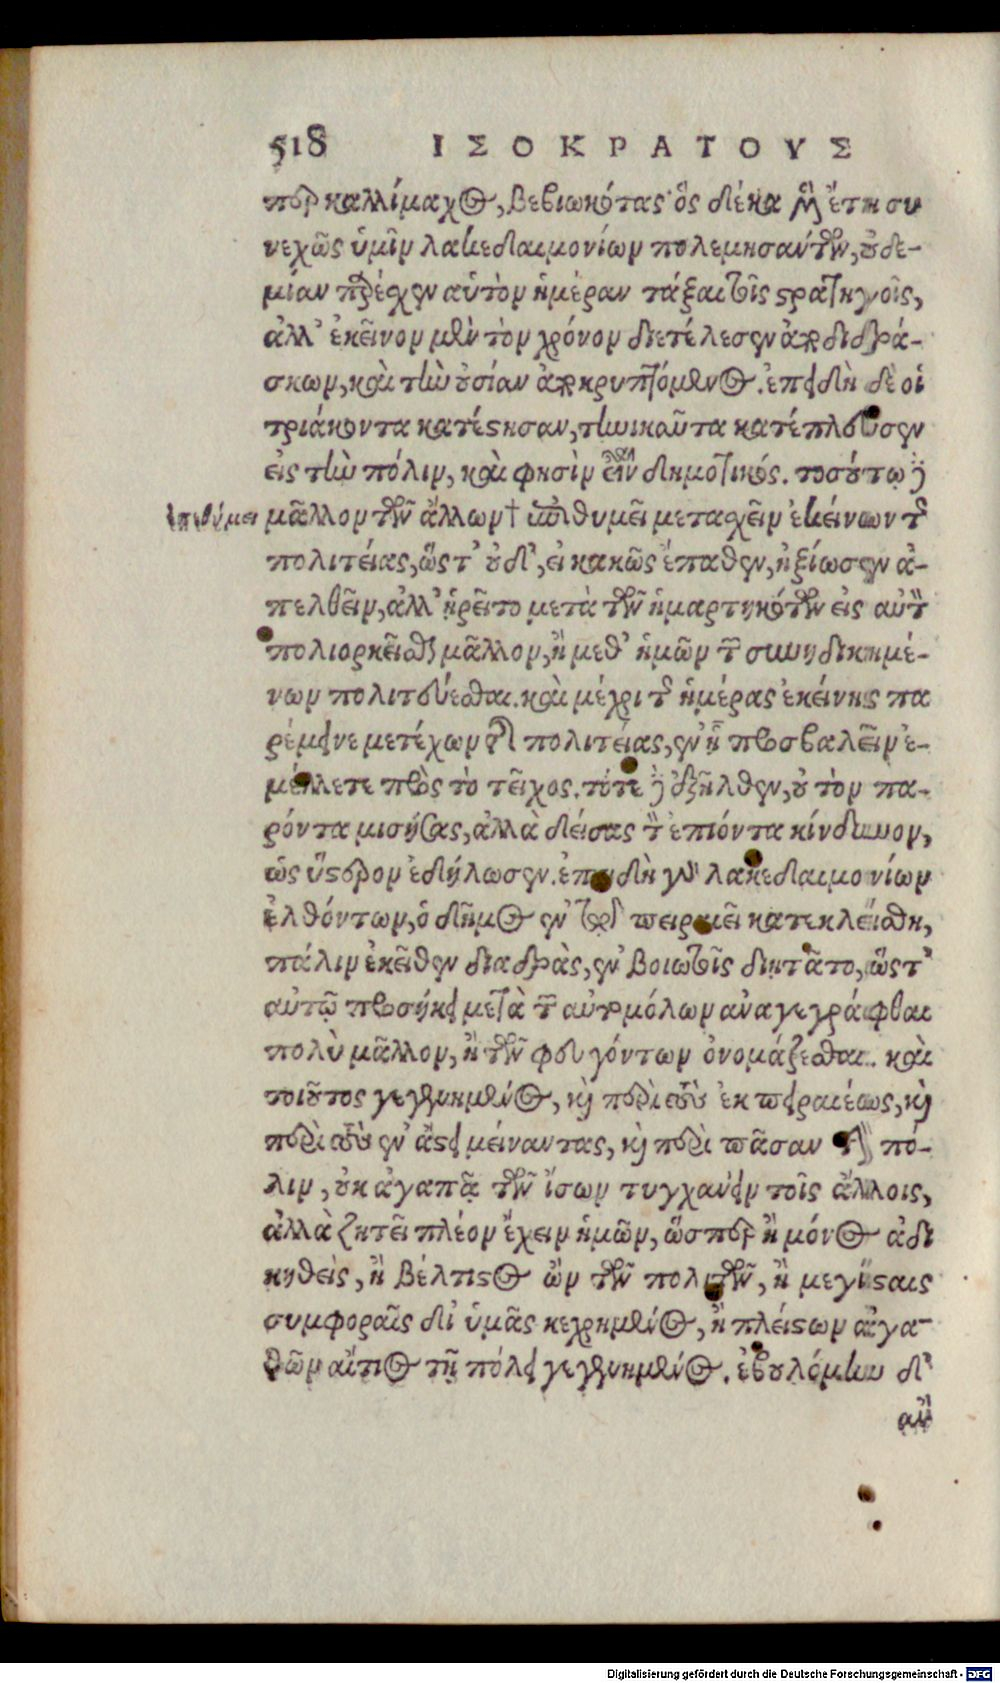 518 ΙΣΟΚΡΑΤΟΥΣ
περ καλλίμαχος, βεβιωκότας· ὃς δέκα μὲν ἔτη συ
νεχῶς ὑμῖν λακεδαιμονίων πολεμησάντων, οὐδε-
μίαν παρέσχεν αὑτὸν ἡμέραν τάξαι τοῖς στρατηγοῖς,
ἀλλ’ ἐκεῖνον μὲν τὸν χρόνον διετέλεσεν ἀποδιδρά-
σκων, καὶ τὴν οὐσίαν ἀποκρυπτόμενος. ἐπειδὴ δὲ οἱ
τριάκοντα κατέστησαν, τηνικαῦτα κατέπλευσεν
εἰς τὴν πόλιν, καὶ φησὶν εἶναι δημοτικός. τοσούτῳ δὲ
ἐπιθύμει μᾶλλον τῶν ἄλλων† ἐπιθυμεῖ μετασχεῖν ἐκείνων τῆς
πολιτείας, ὥστ’ οὐδ’, εἰ κακῶς ἔπαθεν, ἠξίωσεν ἀ-
πελθεῖν, ἀλλ’ ᾑρεῖτο μετὰ τῶν ἡμαρτηκότων εἰς αὐτὸν
πολιορκεῖσθαι μᾶλλον, ἢ μεθ’ ἡμῶν τῶν συνηδικημέ-
νων πολιτεύεσθαι. καὶ μέχρι τῆς ἡμέρας ἐκείνης πα
ρέμεινε μετέχων τῆς πολιτείας, ἐν ᾗ προσβαλεῖν ἐ-
μέλλετε πρὸς τὸ τεῖχος. τότε δὲ ἐξῆλθεν, οὐ τὸν πα-
ρόντα μισήσας, ἀλλὰ δείσας τὸν ἐπιόντα κίνδυνον,
ὡς ὕστερον ἐδήλωσεν. ἐπειδὴ γὰρ λακεδαιμονίων
ἐλθόντων, ὁ δῆμος ἐν τῷ πειραιεῖ κατεκλείσθη,
πάλιν ἐκεῖθεν διαδρὰς, ἐν βοιωτοῖς διῃτᾶτο, ὥστ’
αὐτῷ προσήκει μετὰ τῶν αὐτομόλων ἀναγεγράφθαι
πολὺ μᾶλλον, ἢ τῶν φευγόντων ὀνομάζεσθαι. καὶ
τοιοῦτος γεγενημένος, καὶ περὶ τοὺς ἐκ πειραιέως, καὶ
περὶ τοὺς ἐν ἄστει μείναντας, καὶ περὶ πᾶσαν τὴν πό-
λιν, οὐκ ἀγαπᾷ τῶν ἴσων τυγχάνειν τοῖς ἄλλοις,
ἀλλὰ ζητεῖ πλέον ἔχειν ἡμῶν, ὥσπερ ἢ μόνος ἀδι
κηθείς, ἢ βέλτιστος ὢν τῶν πολιτῶν, ἢ μεγίσταις
συμφοραῖς δι’ ὑμᾶς κεχρημένος, ἢ πλείστων ἀγα-
θῶν αἴτιος τῇ πόλει γεγενημένος. ἐβουλόμην δ’
ἂν
Digitalisierung gefördert durch die Deutsche Forschungsgemeinschaft - DFG